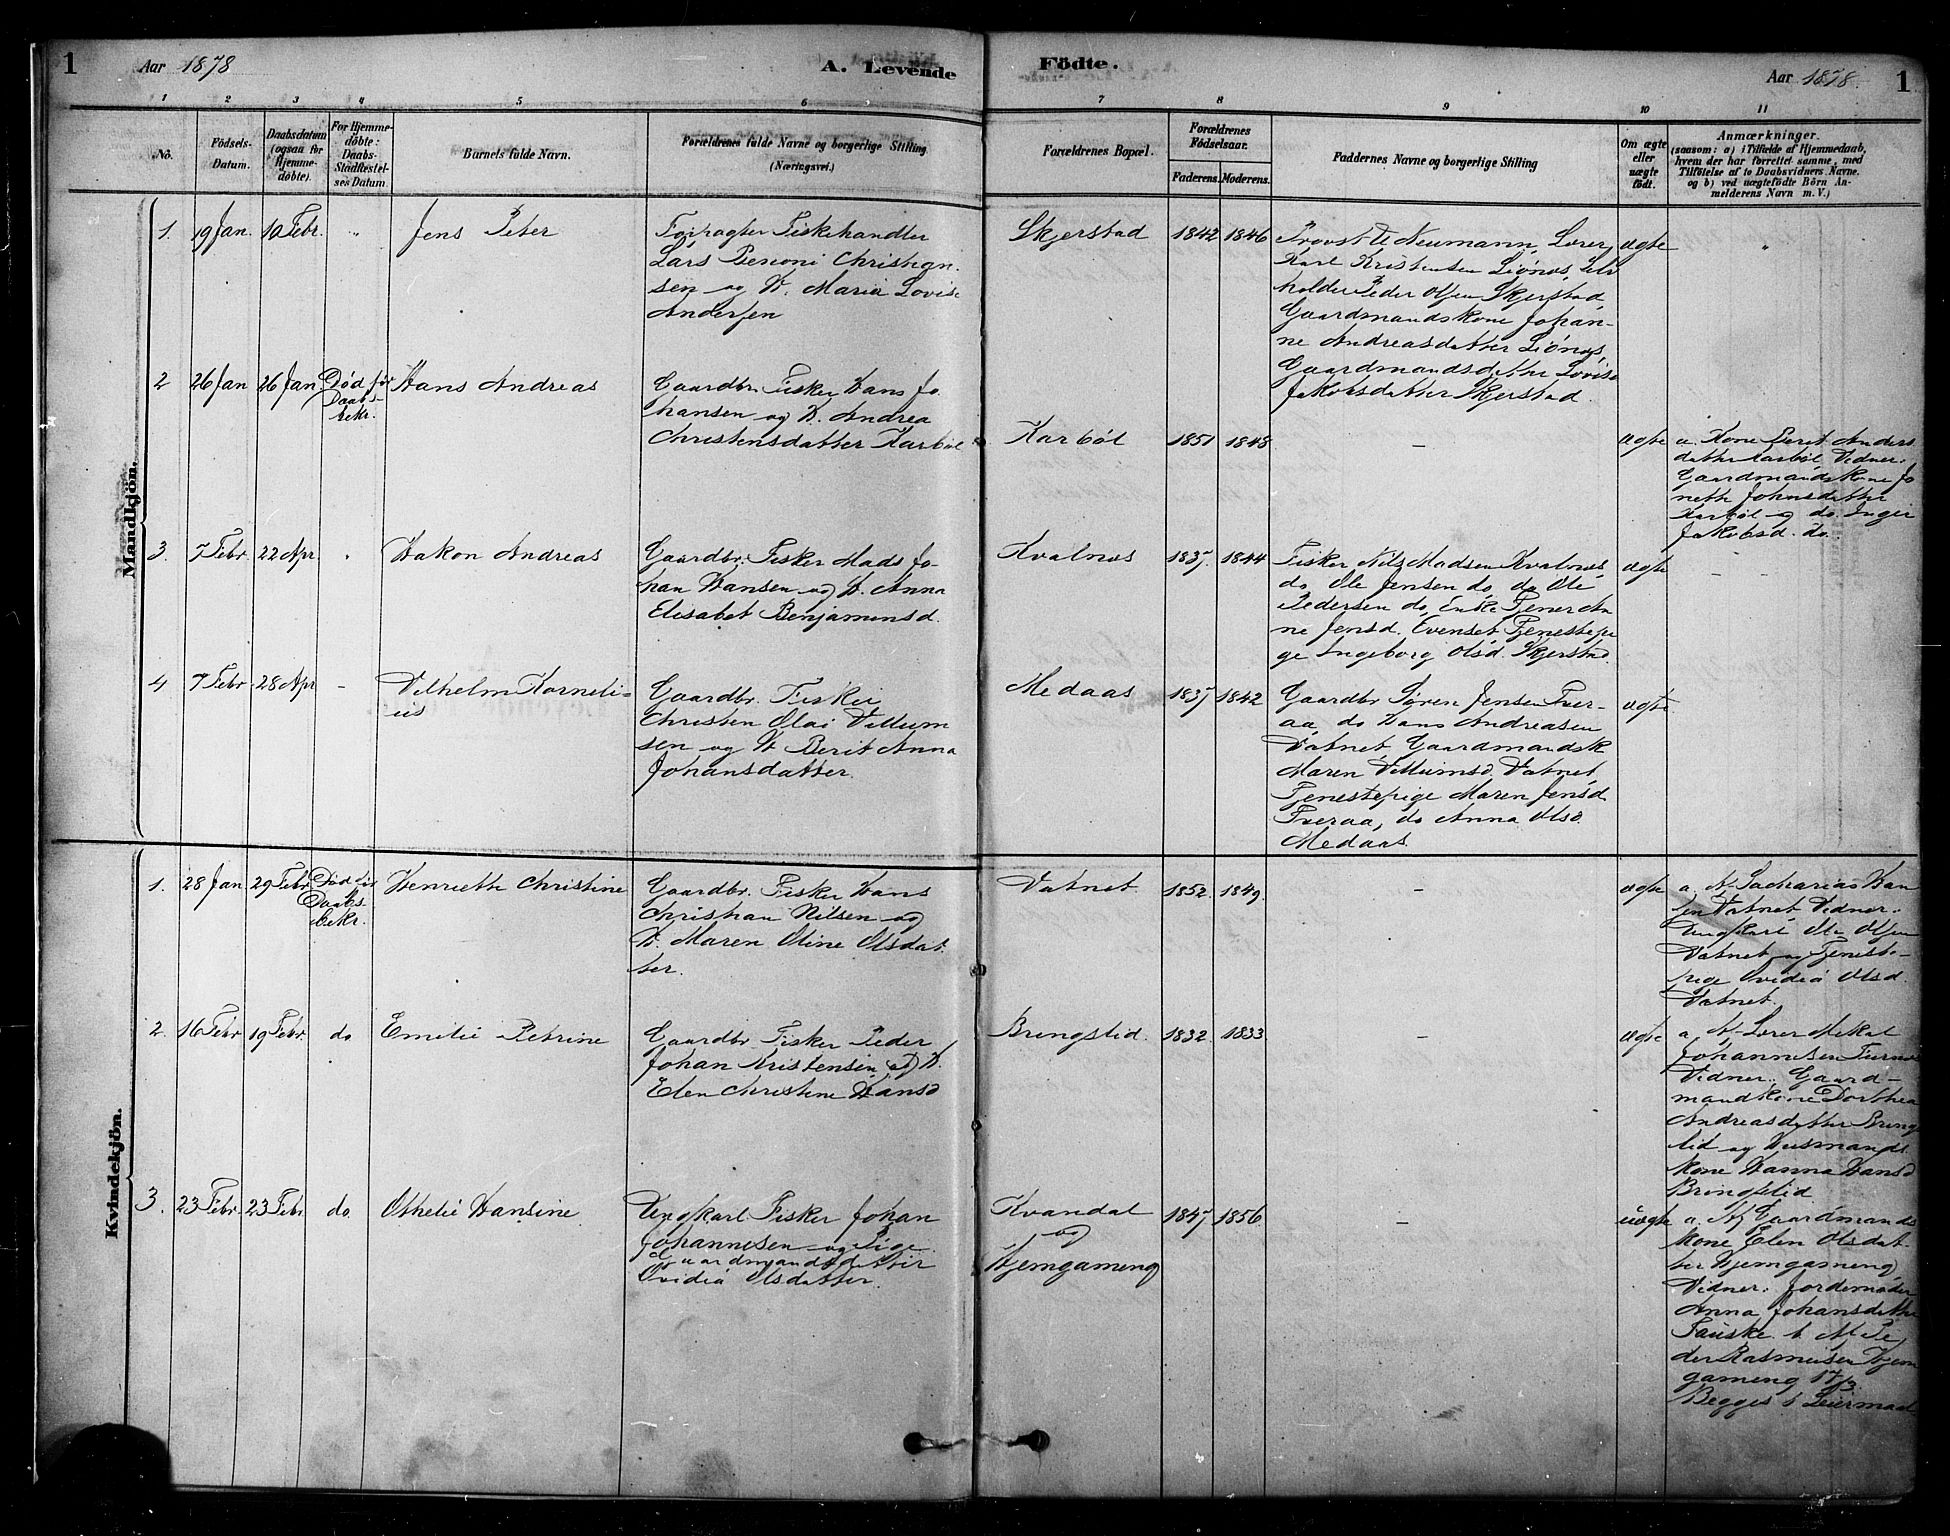 1
Aar 1878
A. Levende
Födte.
Aar 1878.
1
1 2 3 4 5 6 7 8 9 10 11
No.
Födsels-
Datum.
Daabsdatum
(ogsaa for
Hjemme-
döbte).
For Hjemme-
döbte:
Daabs-
Stadfæstel-
ses Datum.
Barnets fulde Navn.
Forældrenes fulde Navne og borgerlige Stilling
(Næringsvei.)
Forældrenes Bopæl.
Forældrenes
Födselsaar.
Faderens. Moderens.
Faddernes Navne og borgerlige Stilling
Om ægte
eller
uægte
födt.
Anmærkninger.
(saasom: a) i Tilfælde af Hjemmedaab,
hvem der har forrettet samme, med
Tilföielse af to Daabsvidners Navne.
og b) ved uægtefödte Börn An-
melderens Navn m. V.)
Mandkjön.
1. 19 Jan. 10 Febr. "
Jens Peter
Forpagter Fiskehandler
Lars Benoni Christian-
sen og H. Maria Lovise
Andersen
Skjerstad
1842 1846
Provst Neumann, Lærer
Karl Kristensen Liönæs,
holder Peder Olsen Skjerstad,
Gaardmandskone Johan-
ne Andreasdatter Liönæs,
Gaardmandsdatter Lovise
Jakobsdatter Skjerstad.
ægte
"
2 26 Jan 26 Jan Död för
Daabs-
bekr.
Hans Andreas
Gaardbr. Fisker Hans Jo-
hansen og H. Andrea
Christensdatter Karböl
Karböl
1851 1848
-
ægte
a. Kone Berit Anders
datter Karböl Vidner:
Gaardmandskone Jo
nette Johnsdatter
Karböl og do. Inger
Jakobsd. do.
3. 7 Febr. 22 Apr. "
Hakon Andreas
Gaardbr. Fisker Mads Jo-
han Hansen og H. Anna
Elisabet Benjaminsd.
Kvalnæs
1837. 1844
Fisker Nils Madsen Kvalnæs
do Ole Jensen do, do Ole
Pedersen do, Enke Tjener An
ne Jensd. Evenset Tjenestepi
ge Ingeborg Olsd. Skjerstad.
ægte
- -
4 7 Febr. 28 Apr -
Vilhelm Korneli-
us
Gaardbr. Fisker
Christen Olai Villum
sen og H. Berit Anna
Johansdatter.
Medaas
1837 1842
Gaardbr Sören Jensen Tver-
aa, do Hans Andreasen
Vatnet Gaardmandsk
Maren Villumsd. Vatnet,
Tjenestepige Maren Jensd
Tveraa, do Anna Olsd.
Medaas.
ægte
Kvindekjön.
1. 28 Jan 29 Febr. Död för
Daabs-
bekr.
Henriette Christine
Gaardbr. Fisker Hans
Christian Nilsen og
H. Maren Oline Olsdat
ter.
Vatnet
1852. 1849.
-
ægte
a. Af Sacharias Han
sen Vatnet Vidner:
Ungkarl Ole Olsen
Vatnet og Tjeneste-
pige Ovidia Olsd.
Vatnet.
2. 16 Febr. 19 Febr. do
Emilie Petrine
Gaardbr Fisker Peder
Johan Kristensen og H.
Elen Christine Hansd
Bringslid.
1832. 1833
-
ægte
a. Af Lærer Mekal
Johannesen
Vidner: Gaard-
mandkone Dorthea
Andreasdatter Brings
lid og Husmands
kone Hanna Hansd
Bringslid
3. 23 Febr. 23 Febr. do
Othelie Hansine
Ungkarl Fisker Johan
Johannesen og Pige
Gaardmandsdatter
Ovidia Olsdatter.
Kvandal
og
Hjemgameng
1847 1856
-
uægte
a. Af Gaardmands
kone Elen Olsdat-
ter Hjemgameng
Vidner: Jordemoder
Anna Johansdatter
Fauske. b. Af Pe
der Rasmusen Hjem
gameng 17/3.
Begges 1 Leiermaal